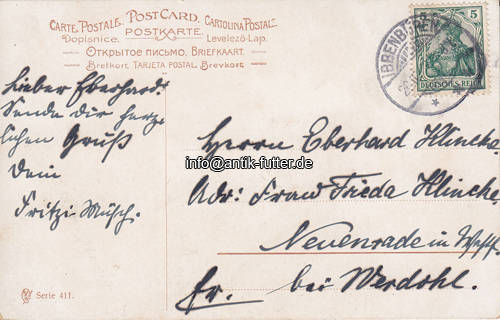 CARTE POSTALE. POSTCARD. CARTOLINA POSTAL.
Dopisnice. POSTKARTE. Levelező-Lap.
ОТКРЫТОЕ ПИСЬМО, BRIEFKAART.
Brefkort. TARJETA POSTAL. Brevkort.
5 5
DEUTSCHES REICH
IBBENBÜREN
Lieber Eberhard
Sende dir herz
lichen Gruß
Dein
Fritzi Müsch.
info@antik-futter.de
Herrn Eberhard Klincke
Adr: Frau Frieda Klincke
Neuenrade in Westf
fr. bei Werdohl.
Serie 411.